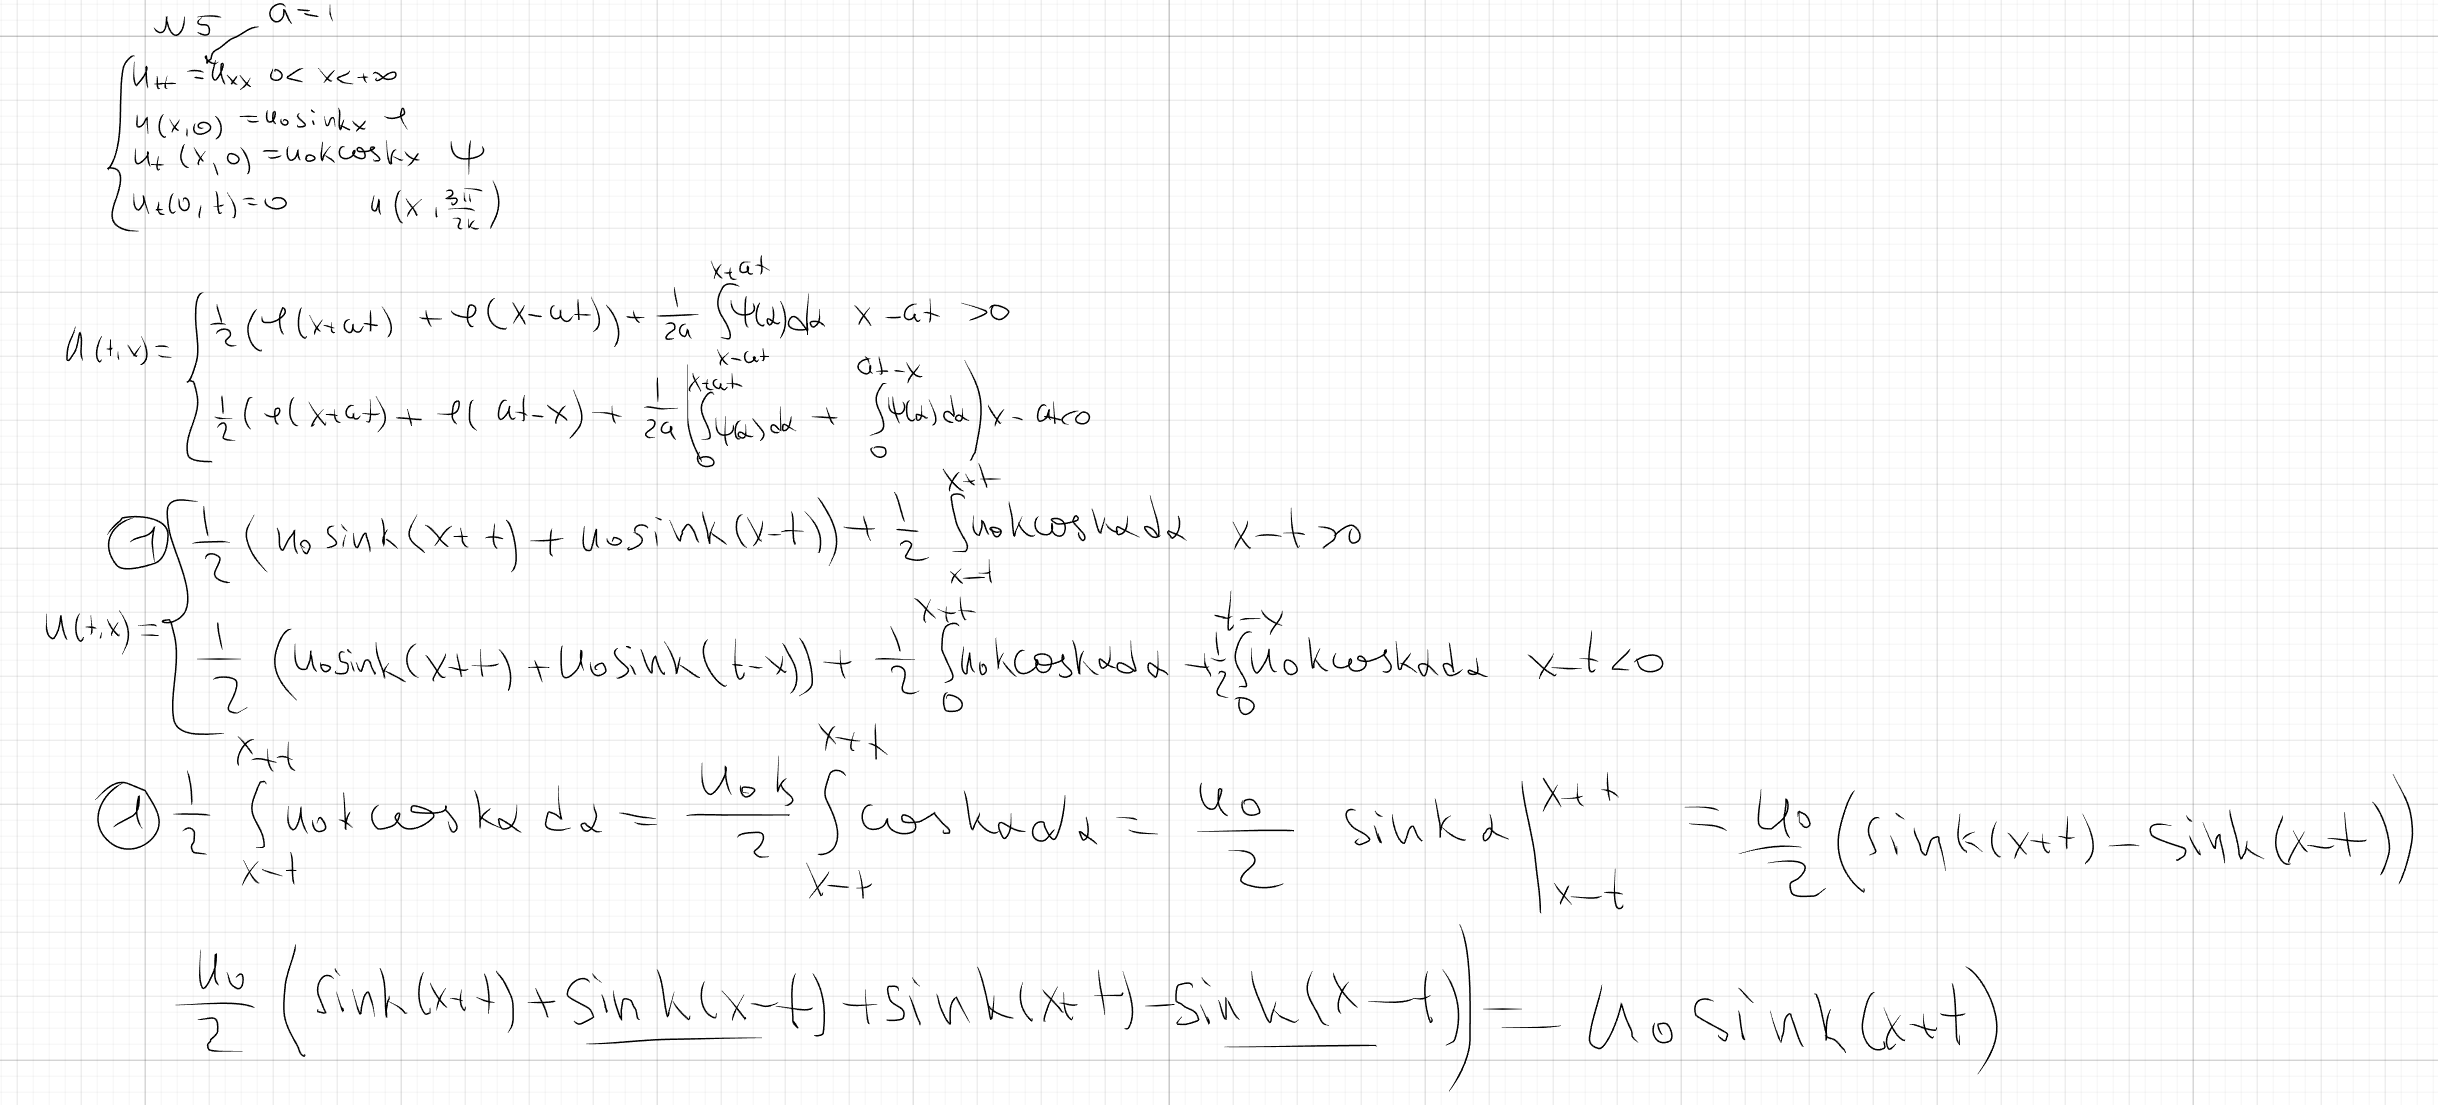 N5 a=1
u_tt = u_xx 0< x<+∞
u(x,0) = u₀sinkx φ
u_t (x,0) = u₀kcoskx ψ
u_t(0,t)=0 u(x, 3π/2k)
u(t,x)= { 1/2 (φ(x+at) + φ(x-at)) + 1/2a ∫_{x-at}^{x+at} ψ(α)dα x-at >0
1/2 (φ(x+at) + φ(at-x) + 1/2a (∫_0^{x+at} ψ(α)dα + ∫_0^{at-x} ψ(α)dα) x-at<0
① 1/2 (u₀sink(x+t) + u₀sink(x-t)) + 1/2 ∫_{x-t}^{x+t} u₀kcoskαdα x-t>0
u(t,x)= { 1/2 (u₀sink(x+t) + u₀sink(t-x)) + 1/2 ∫_0^{x+t} u₀kcoskαdα + 1/2 ∫_0^{t-x} u₀kcoskαdα x-t<0
① 1/2 ∫_{x-t}^{x+t} u₀kcoskαdα = u₀k/2 ∫_{x-t}^{x+t} coskαdα = u₀/2 sinkα |_{x-t}^{x+t} = u₀/2 (sink(x+t) - sink(x-t))
u₀/2 (sink(x+t) + sink(x-t) + sink(x+t) - sink(x-t)) = u₀sink(x+t)